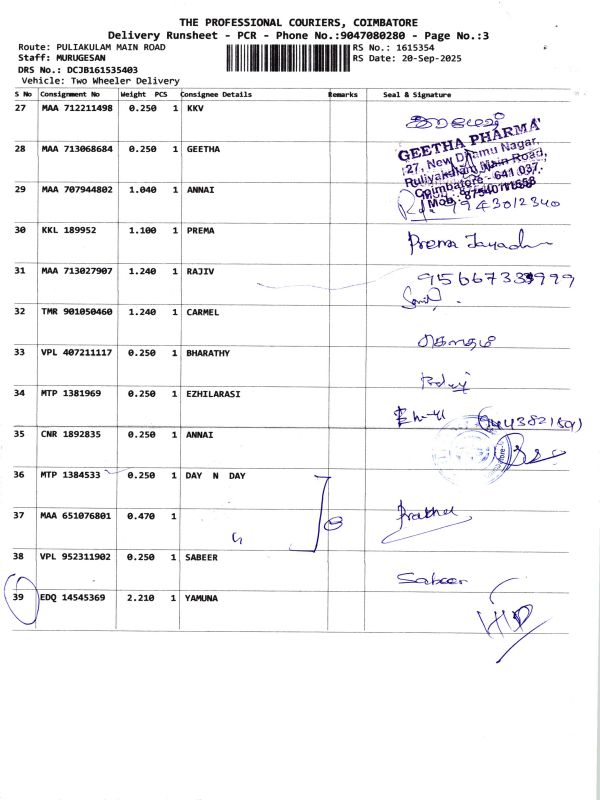 THE PROFESSIONAL COURIERS, COIMBATORE
Delivery Runsheet - PCR - Phone No.:9047080280 - Page No.:3
Route: PULIAKULAM MAIN ROAD RS No.: 1615354
Staff: MURUGESAN RS Date: 20-Sep-2025
DRS No.: DCJB161535403
Vehicle: Two Wheeler Delivery
S No Consignment No Weight PCS Consignee Details Remarks Seal & Signature
27 MAA 712211498 0.250 1 KKV
28 MAA 713068684 0.250 1 GEETHA
GEETHA PHARMA
27, New Dhamu Nagar,
Puliyakulam Main Road,
Coimbatore - 641 037.
Mob.: 8754011558
29 MAA 707944802 1.040 1 ANNAI
9943012340
30 KKL 189952 1.100 1 PREMA Prema
31 MAA 713027907 1.240 1 RAJIV
32 TMR 901050460 1.240 1 CARMEL
33 VPL 407211117 0.250 1 BHARATHY
34 MTP 1381969 0.250 1 EZHILARASI
35 CNR 1892835 0.250 1 ANNAI
36 MTP 1384533 0.250 1 DAY N DAY
37 MAA 651076801 0.470 1
38 VPL 952311902 0.250 1 SABEER Sabeer
39 EDQ 14545369 2.210 1 YAMUNA